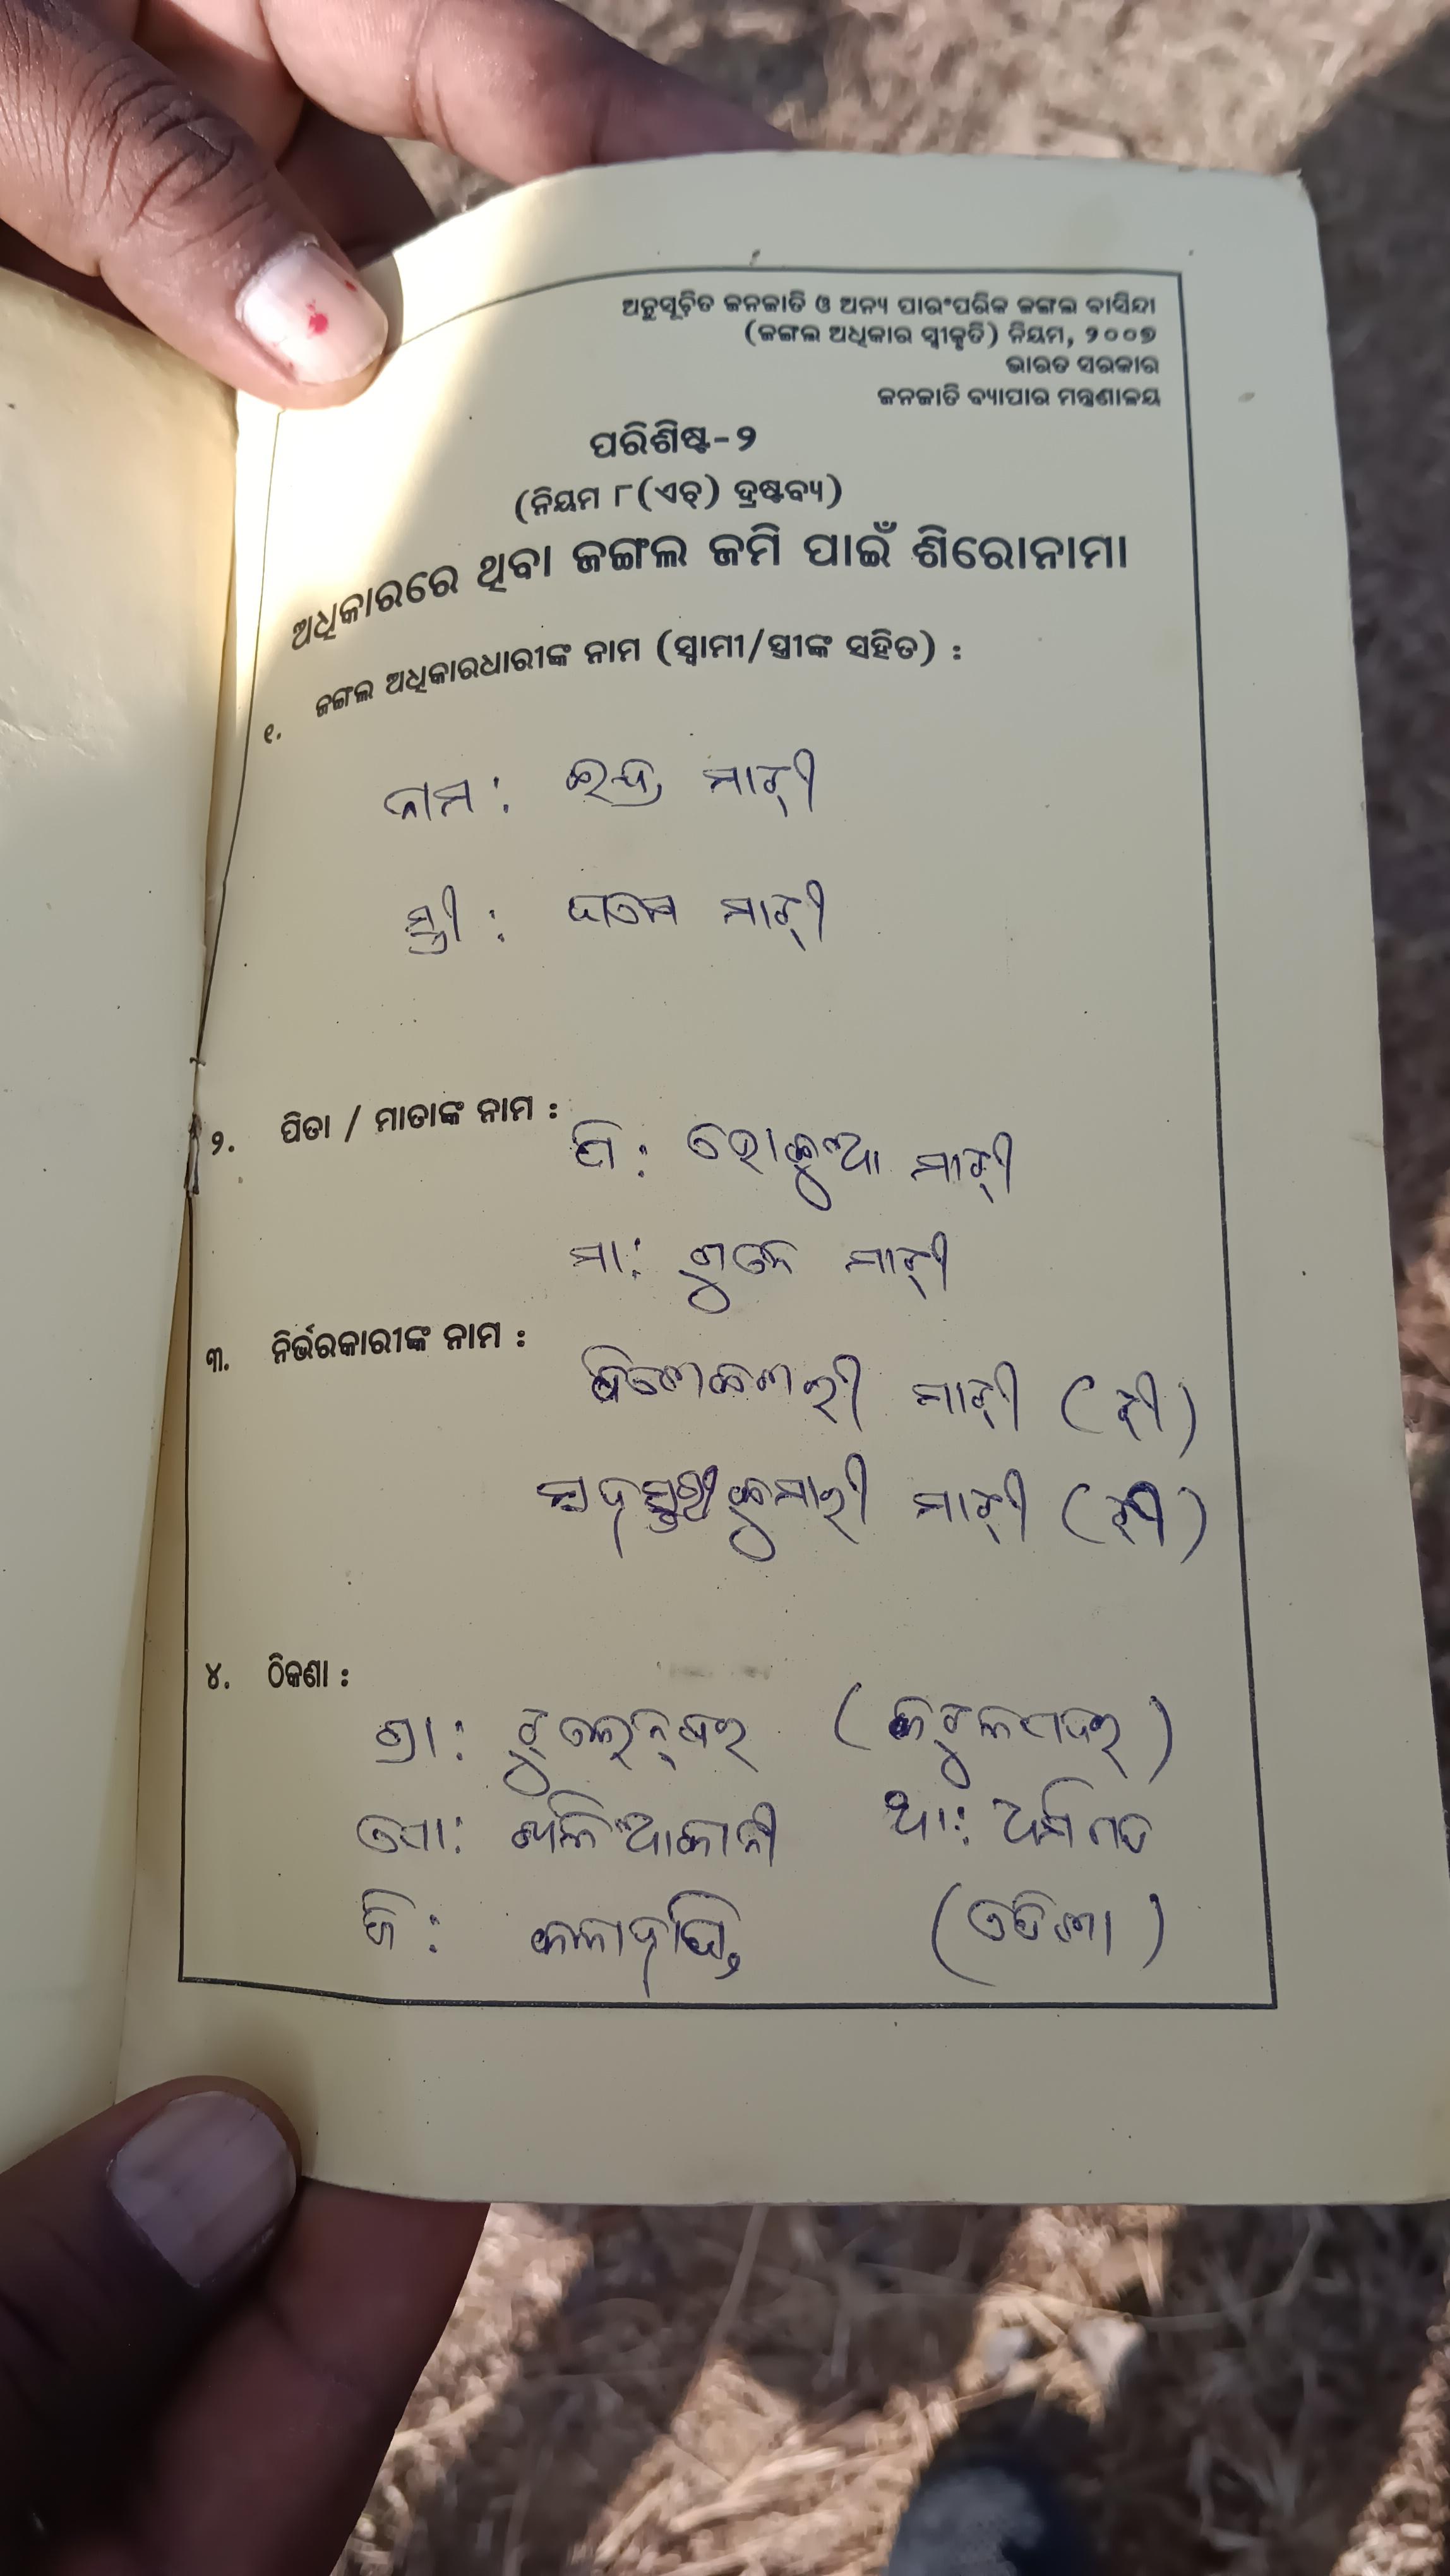 ଅନୁସୂଚିତ ଜନଜାତି ଓ ଅନ୍ୟ ପାରଂପରିକ ଜଙ୍ଗଲ ବାସିନ୍ଦା
(ଜଙ୍ଗଲ ଅଧିକାର ସ୍ୱୀକୃତି) ନିୟମ, ୨୦୦୭
ଭାରତ ସରକାର
ଜନଜାତି ବ୍ୟାପାର ମନ୍ତ୍ରଣାଳୟ
ପରିଶିଷ୍ଟ-୨
(ନିୟମ ୮(ଏଚ୍) ଦ୍ରଷ୍ଟବ୍ୟ)
ଅଧିକାରରେ ଥିବା ଜଙ୍ଗଲ ଜମି ପାଇଁ ଶିରୋନାମା
୧. ଜଙ୍ଗଲ ଅଧିକାରଧାରୀଙ୍କ ନାମ (ସ୍ୱାମୀ/ସ୍ତ୍ରୀଙ୍କ ସହିତ) :
ନାମ : ଇନ୍ଦ୍ର ମାଝୀ
ସ୍ତ୍ରୀ : ମାଝୀ
୨. ପିତା / ମାତାଙ୍କ ନାମ :
ପି : ମାଝୀ
ମା : ମାଝୀ
୩. ନିର୍ଭରକାରୀଙ୍କ ନାମ :
ମାଝୀ (ଝୀ)
ମାଝୀ (ଝୀ)
୪. ଠିକଣା :
ଗ୍ରା :
ପୋ : ଥା : ଧର୍ମଗଡ
ଜି : କଳାହାଣ୍ଡି, (ଓଡିଶା)